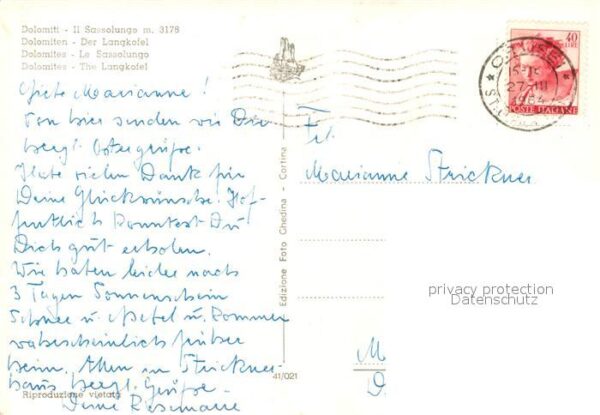 Dolomiti - Il Sassolungo m. 3178
Dolomiten - Der Langkofel
Dolomites - Le Sassolungo
Dolomites - The Langkofel
Liebe Marianne!
Von hier senden wir Dir
herzl. Ostergrüße.
Habe vielen Dank für
Deine Glückwünsche. Hof-
fentlich konntest Du
Dich gut erholen.
Wir haben leider nach
3 Tagen Sonnenschein
Schnee u. Nebel u. kommen
wahrscheinlich früher
heim. Allen im Strickner-
haus herzl. Grüße
Deine Rosmarie
Riproduzione vietata
41/021
Edizione Foto Ghedina - Cortina
40
LIRE
POSTE ITALIANE
ORTISEI
27 III
1964
Frl.
Marianne Strickner
privacy protection
Datenschutz
M